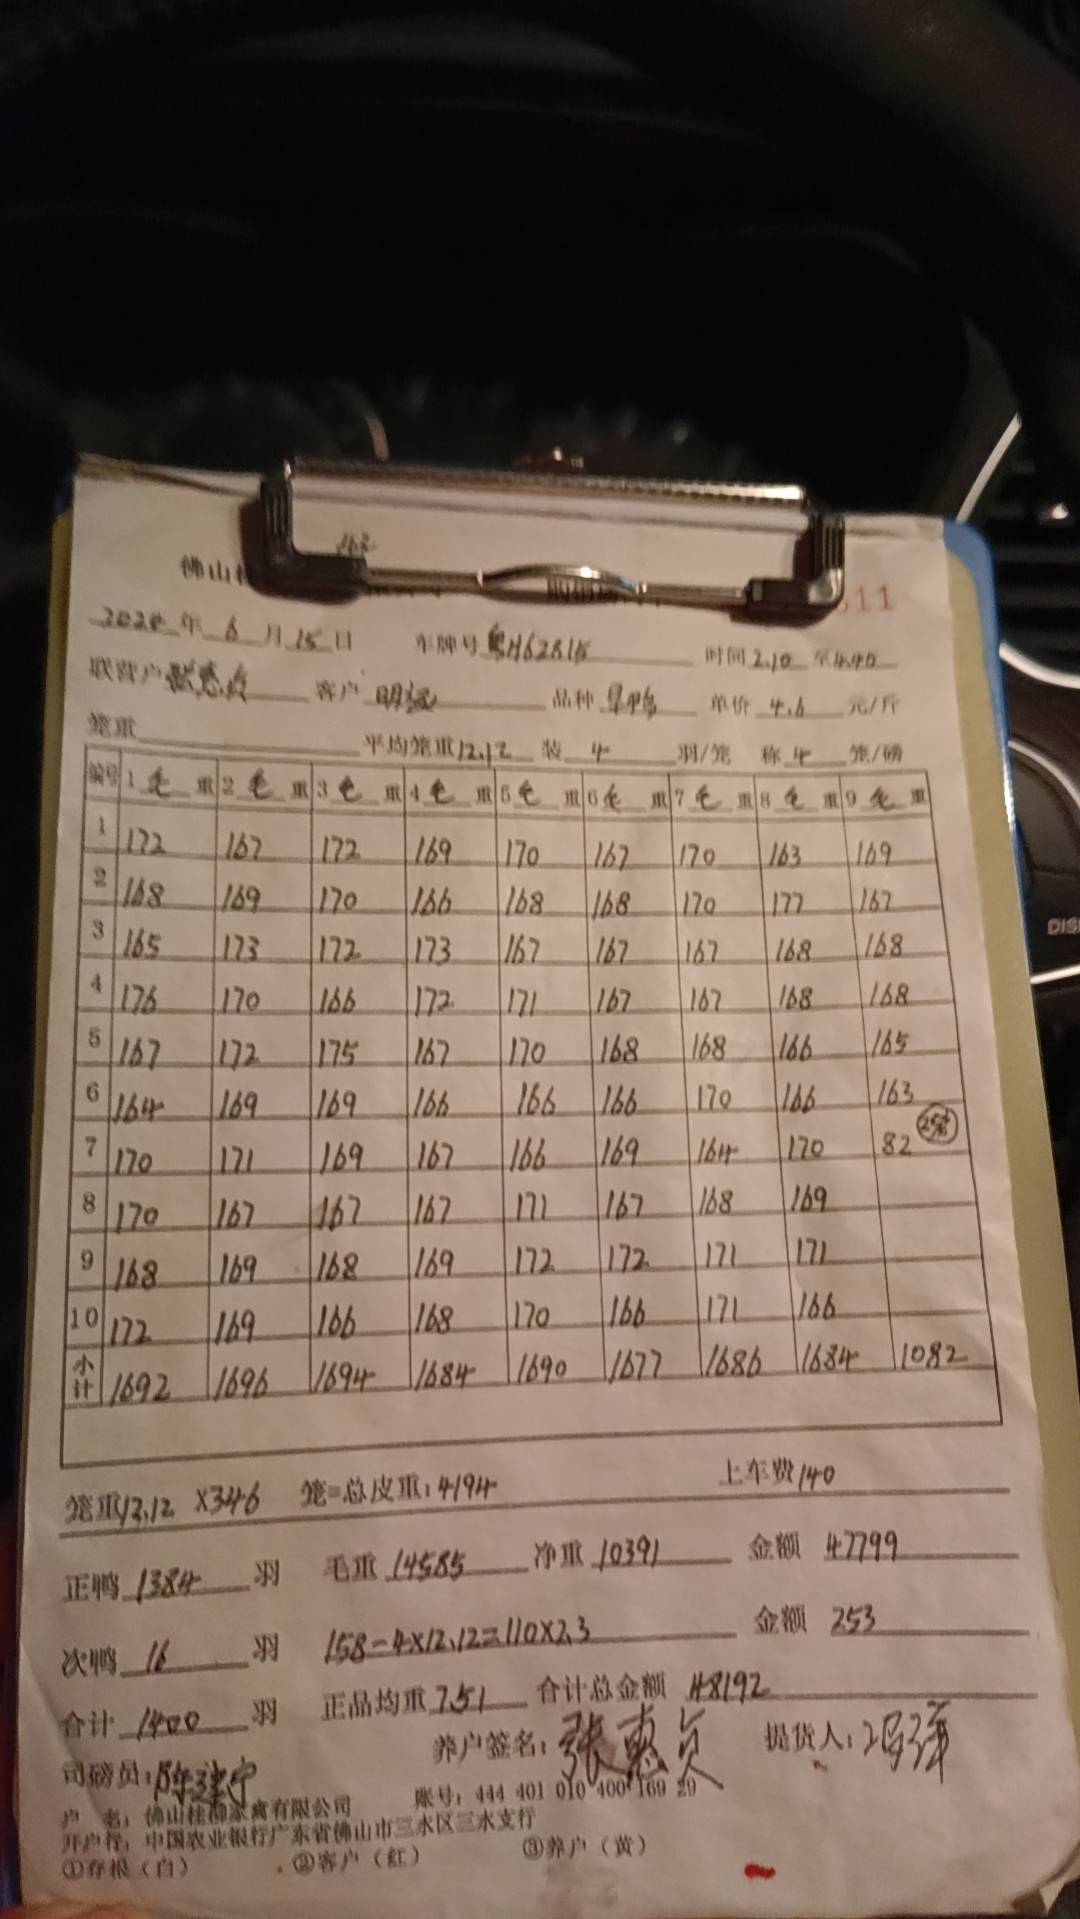 佛山桂
611
202 年 6 月 15 日 车牌号 粤H62815 时间 2.10 至 4.40
联营户 张惠贞 客户 明 品种 旱鸭 单价 4.6 元/斤
笼重 平均笼重 12.12 装 4 羽/笼 称 4 笼/磅
编号 1 毛 重 2 毛 重 3 毛 重 4 毛 重 5 毛 重 6 毛 重 7 毛 重 8 毛 重 9 毛 重
1 172 167 172 169 170 167 170 163 169
2 168 169 170 166 168 168 170 177 167
3 165 173 172 173 167 167 167 168 168
4 176 170 166 172 171 167 167 168 168
5 167 172 175 167 170 168 168 166 165
6 164 169 169 166 166 166 170 166 163
7 170 171 169 167 166 169 164 170 82
8 170 167 167 167 171 167 168 169
9 168 169 168 169 172 172 171 171
10 172 169 166 168 170 166 171 166
小计 1692 1696 1694 1684 1690 1677 1686 1684 1082
笼重 12.12 ×346 笼=总皮重: 4194 上车费 140
正鸭 1384 羽 毛重 14585 净重 10391 金额 47799
次鸭 16 羽 158-4×12.12=110×2.3 金额 253
合计 1400 羽 正品均重 7.51 合计总金额 48192
司磅员: 陈建宁 养户签名: 张惠贞 提货人:
户 名: 佛山桂柳家禽有限公司 账号: 444 401 010 400 169 29
开户行: 中国农业银行广东省佛山市三水区三水支行
①存根(白) ②客户(红) ③养户(黄)
DIS